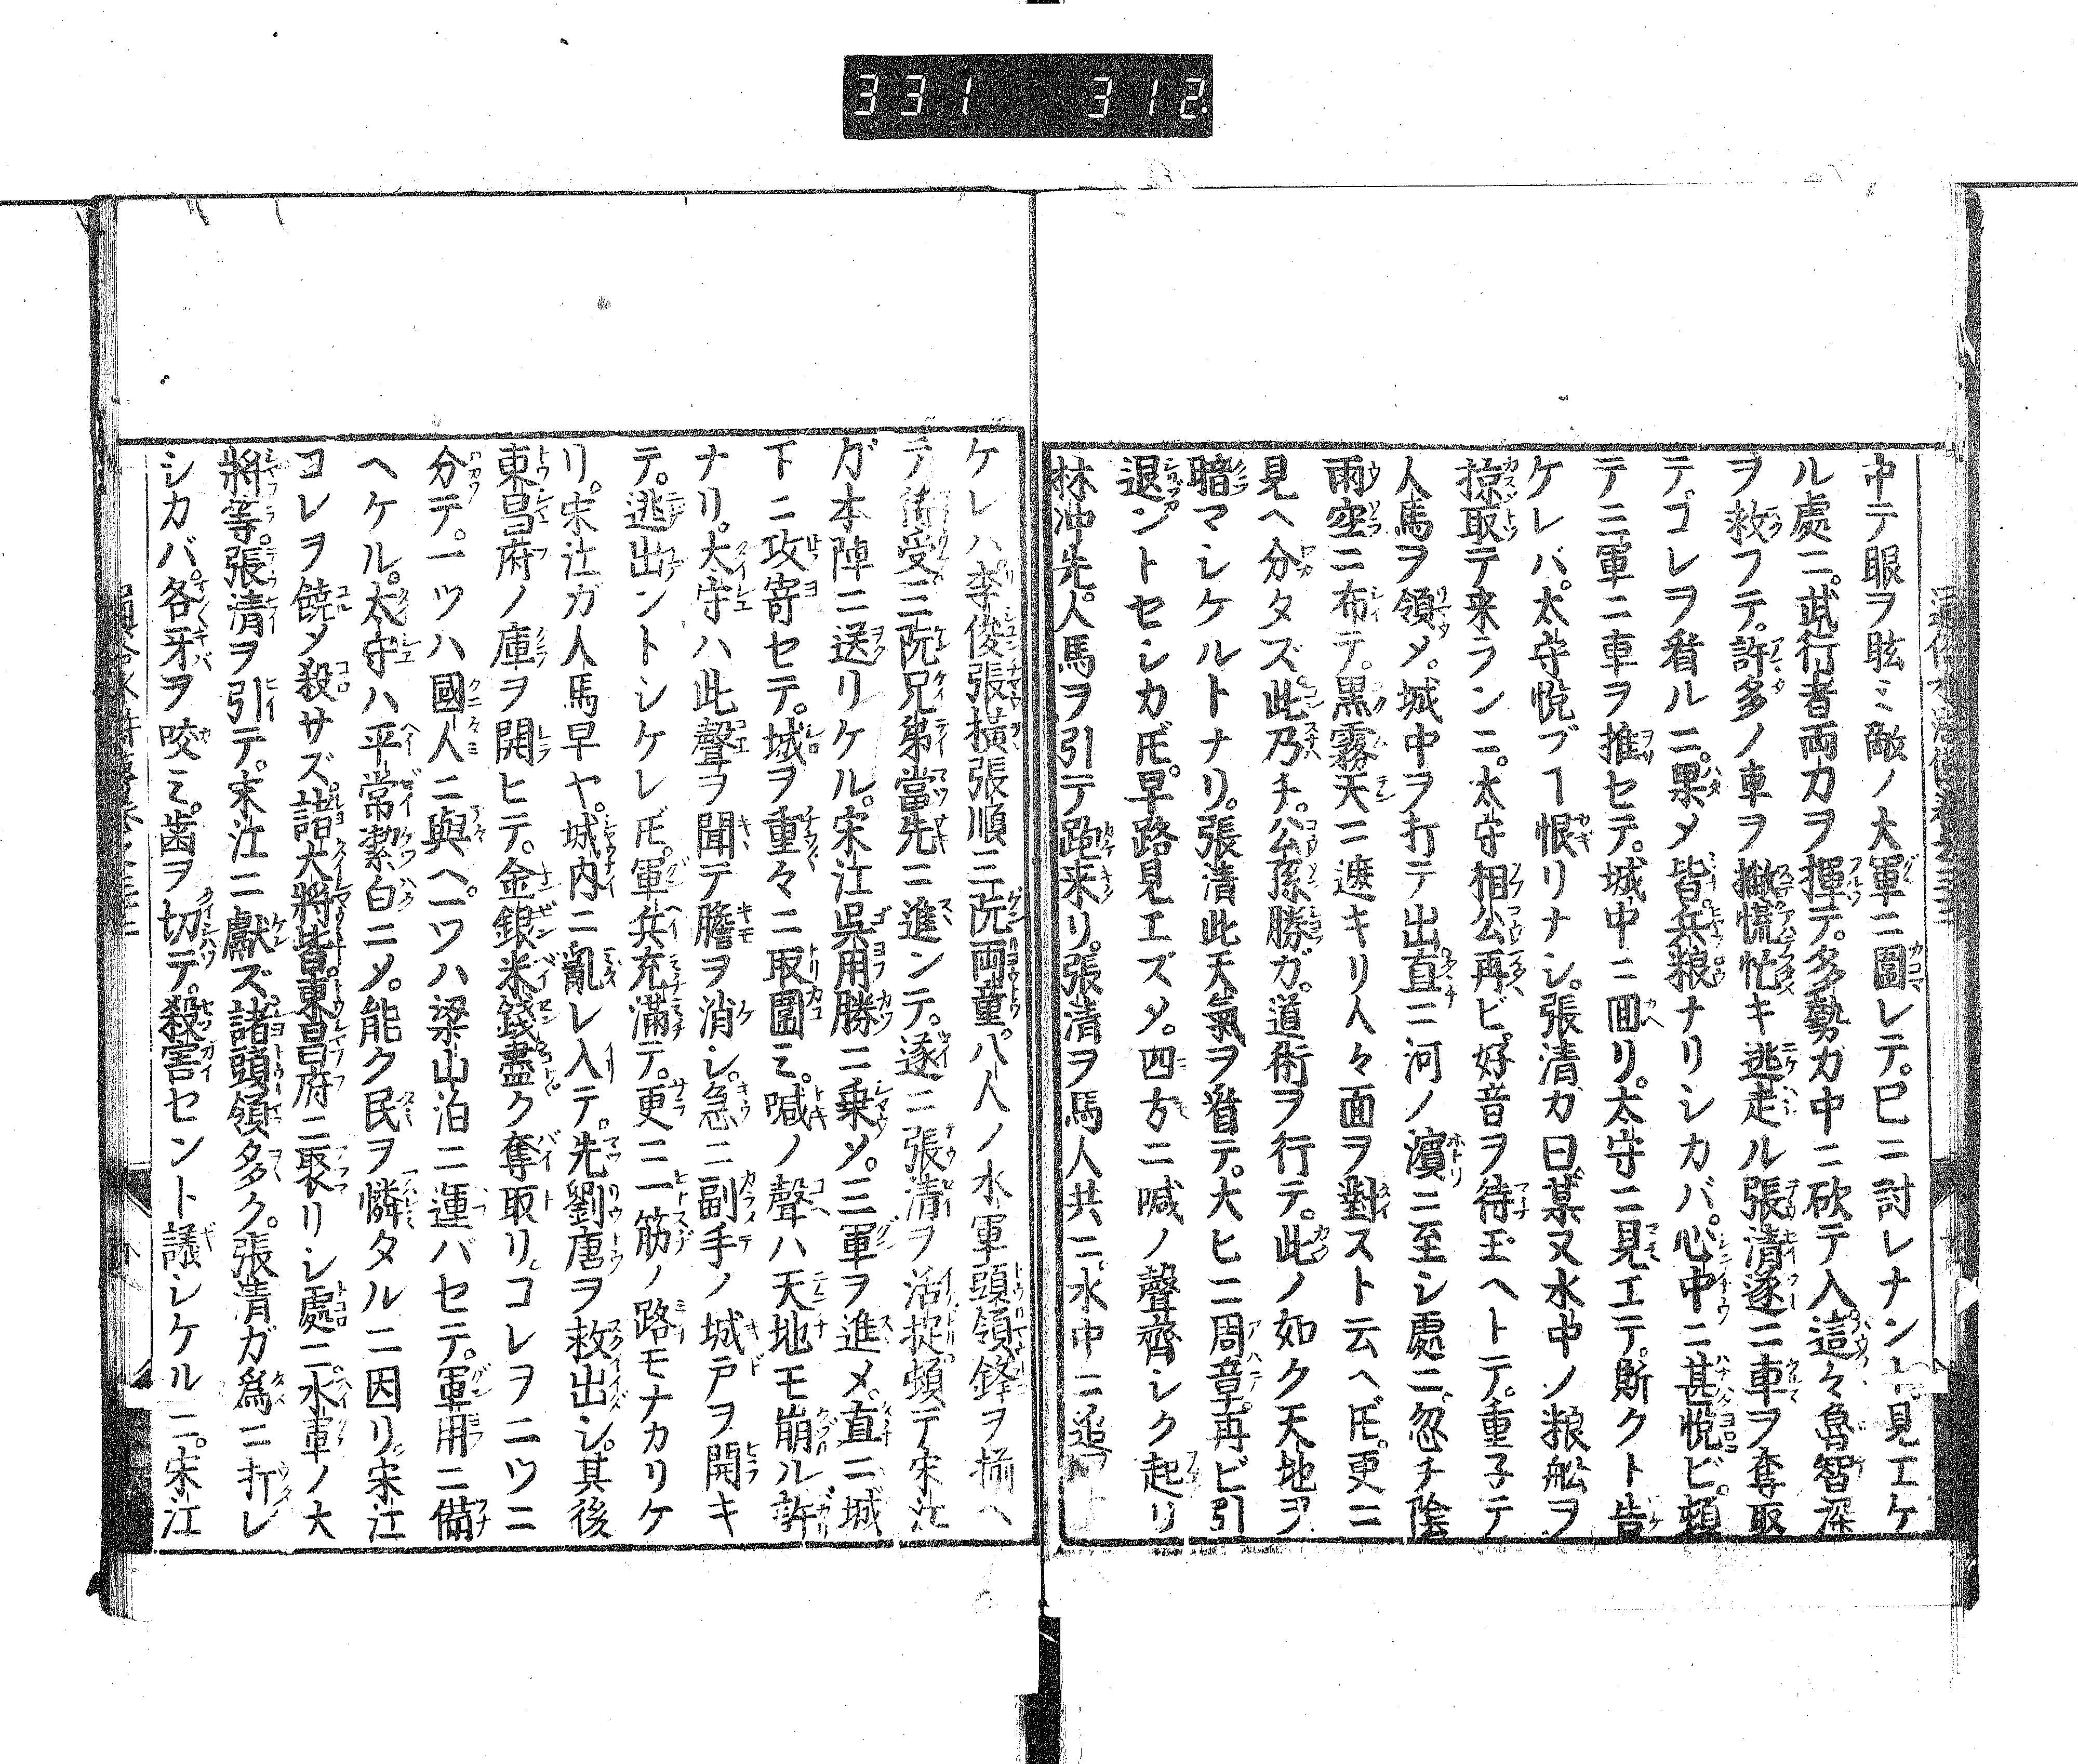 331 312
中テ眼ヲ眩ミ敵ノ大軍ニ圍レテ。巳ニ討レナント。見エケ
ル處ニ。武行者両力ヲ揮テ。多勢ガ中ニ砍テ入。這々魯智深
ヲ救フテ。許多ノ車ヲ撇慌忙キ逃走ル張清遂ニ車ヲ奪取
テ。コレヲ看ルニ。果メ皆兵粮ナリシカバ。心中ニ甚悦ビ。頓
テ三軍ニ車ヲ推セテ。城中ニ回リ。太守ニ見エテ。斯クト告
ケレバ。太守悦ブヿ恨リナシ。張清カ曰。某又水中ノ粮舩ヲ
掠取テ来ランニ。太守相公再ビ。好音ヲ待玉ヘトテ。重子テ
人馬ヲ領メ。城中ヲ打テ出直ニ河ノ濱ニ至シ處ニ。忽チ陰
雨空ニ布テ。黒霧天ニ遮キリ人々面ヲ對スト云ヘ𪜈。更ニ
見ヘ分タズ。此乃チ。公孫勝ガ。道術ヲ行テ。此ノ如ク天地ヲ
暗マシケルトナリ。張清此天氣ヲ看テ。大ヒニ周章。再ビ引
退ントセシカ𪜈。早路見エズメ。四方ニ喊ノ聲齊シク起リ
林冲先。人馬ヲ引テ跑来リ。張清ヲ馬人共ニ。水中ニ追
ケレハ李俊張横張順三阮両童。八人ノ水軍頭領鋒ヲ揃ヘ
テ待受三阮兄弟當先ニ進ンテ。遂ニ張清ヲ活捉頓テ宋江
ガ本陣ニ送リケル。宋江呉用勝ニ乗ソ。三軍ヲ進メ。直ニ城
下ニ攻寄セテ。城ヲ重々ニ取圍ミ。喊ノ聲ハ天地モ崩ル許
ナリ。太守ハ此聲ヲ聞テ膽ヲ消シ。急ニ副手ノ城戸ヲ開キ
テ。逃出ントシケレ𪜈。軍兵充滿テ。更ニ一筋ノ路モナカリケ
リ。宋江ガ人馬早ヤ。城内ニ亂レ入テ。先劉唐ヲ救出シ。其後
東昌府ノ庫ヲ開ヒテ。金銀米錢盡ク奪取リ。コレヲ二ツニ
分テ。一ツハ國人ニ與ヘ。一ツハ梁山泊ニ運バセテ。軍用ニ備
ヘケル。太守ハ平常潔白ニメ。能ク民ヲ憐タルニ因リ。宋江
コレヲ饒メ殺サズ。諸大將皆東昌府ニ聚リシ處ニ。水軍ノ大
將等。張清ヲ引テ。宋江ニ獻ズ諸頭領多ク。張清ガ為ニ打レ
シカバ。各牙ヲ咬ミ。歯ヲ切テ。殺害セント議シケルニ。宋江